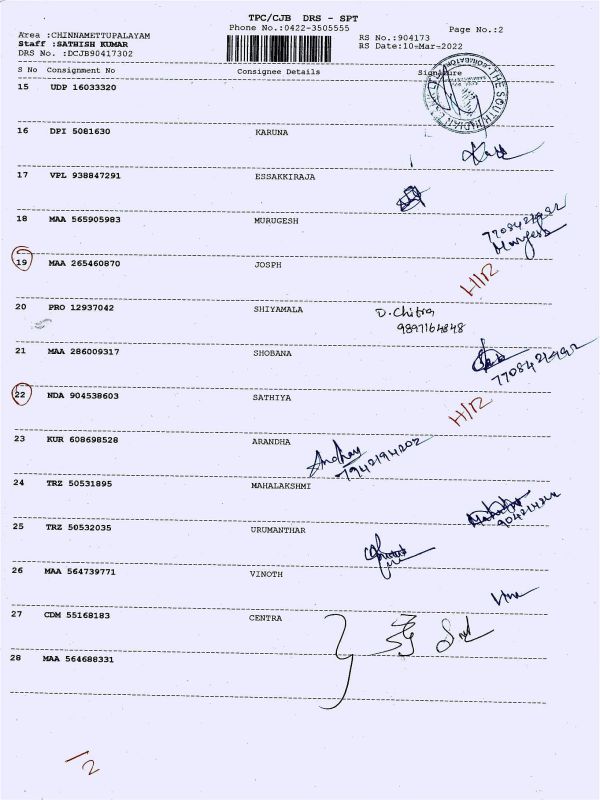 TPC/CJB DRS - SPT
Phone No.:0422-3505555
Page No.:2
Area :CHINNAMETTUPALAYAM
Staff :SATHISH KUMAR
DRS No. :DCJB90417302
RS No.:904173
RS Date:10-Mar-2022
S No Consignment No Consignee Details Signature
THE SOUTH INDIAN
15 UDP 16033320
16 DPI 5081630 KARUNA
17 VPL 938847291 ESSAKKIRAJA
18 MAA 565905983 MURUGESH
19 MAA 265460870 JOSPH
H/R
20 PRO 12937042 SHIYAMALA D. Chitra
9897164848
21 MAA 286009317 SHOBANA
22 NDA 904538603 SATHIYA
H/R
23 KUR 608698528 ARANDHA
24 TRZ 50531895 MAHALAKSHMI
25 TRZ 50532035 URUMANTHAR
26 MAA 564739771 VINOTH
27 CDM 55168183 CENTRA
28 MAA 564688331